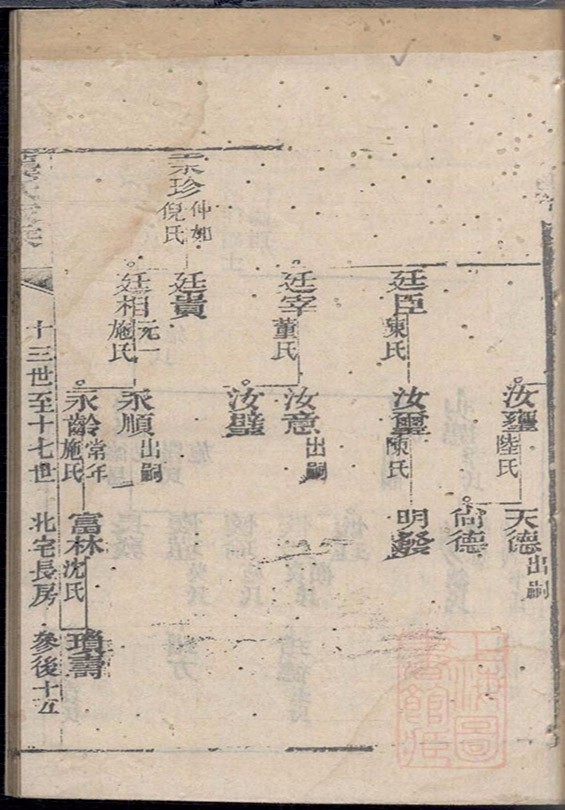 汝璽陸氏
天德出嗣
尙德
廷臣陳氏
汝璽陳氏
明發
廷宰董氏
汝意出嗣
汝璧
宗珍仲如倪氏
廷貴
廷相元一施氏
永順出嗣
永齡常年施氏
富林沈氏
瑣壽
十三世至十七世
北宅長房
參後十五
上海圖書館藏